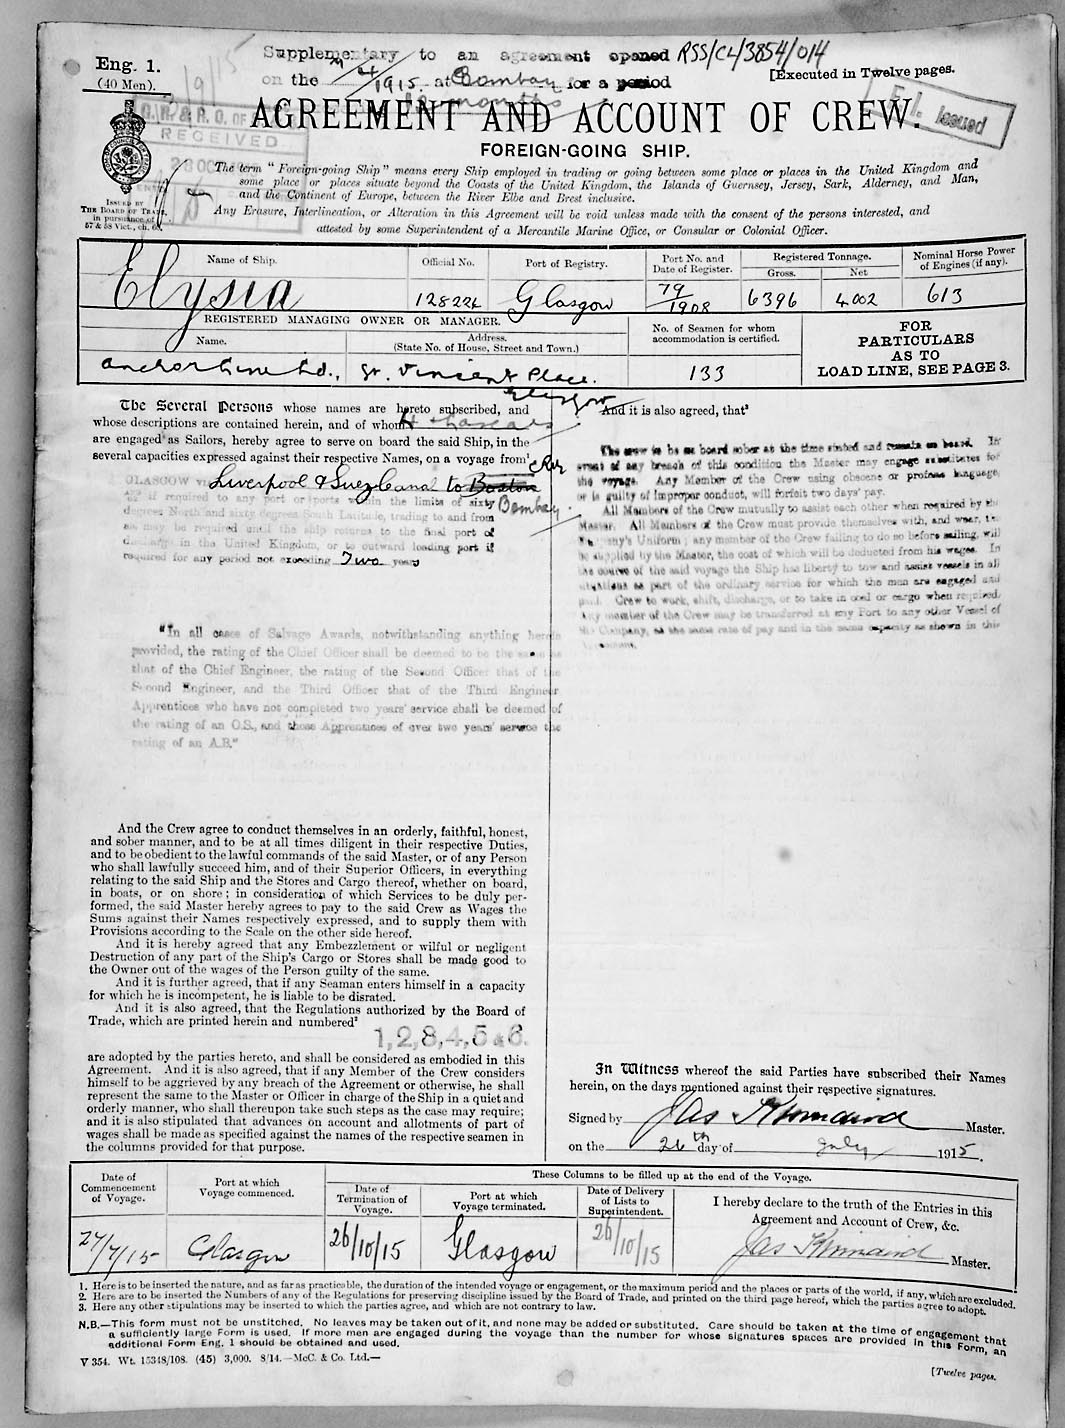 Eng. 1.
(40 Men).
Supplementary to an agreement opened RSS/CL/3854/014
on the 1915 at Bombay for a period
months
[Executed in Twelve pages.
RECEIVED
E.I. Issued
AGREEMENT AND ACCOUNT OF CREW.
FOREIGN-GOING SHIP.
ISSUED BY
THE BOARD OF TRADE,
in pursuance of
57 & 58 Vict., ch. 60.
The term "Foreign-going Ship" means every Ship employed in trading or going between some place or places in the United Kingdom and
some place or places situate beyond the Coasts of the United Kingdom, the Islands of Guernsey, Jersey, Sark, Alderney, and Man,
and the Continent of Europe, between the River Elbe and Brest inclusive.
Any Erasure, Interlineation, or Alteration in this Agreement will be void unless made with the consent of the persons interested, and
attested by some Superintendent of a Mercantile Marine Office, or Consular or Colonial Officer.
Name of Ship. Official No. Port of Registry. Port No. and Date of Register. Registered Tonnage. Gross. Net Nominal Horse Power of Engines (if any).
Elysia 128224 Glasgow 79/1908 6396 4002 613
REGISTERED MANAGING OWNER OR MANAGER.
Name. Address. (State No. of House, Street and Town.) No. of Seamen for whom accommodation is certified.
FOR
PARTICULARS
AS TO
LOAD LINE, SEE PAGE 3.
Anchor Line Ltd., St. Vincent Place. 133
Glasgow
The Several Persons whose names are hereto subscribed, and
whose descriptions are contained herein, and of whom
are engaged as Sailors, hereby agree to serve on board the said Ship, in the
several capacities expressed against their respective Names, on a voyage from
GLASGOW via Liverpool & Suez Canal to Boston
Bombay.
if required to any port or ports within the limits of sixty
degrees North and sixty degrees South Latitude, trading to and from
as may be required until the ship returns to the final port of
discharge in the United Kingdom, or to outward loading port if
required for any period not exceeding Two years
"In all cases of Salvage Awards, notwithstanding anything herein
provided, the rating of the Chief Officer shall be deemed to be the same as
that of the Chief Engineer, the rating of the Second Officer that of the
Second Engineer, and the Third Officer that of the Third Engineer.
Apprentices who have not completed two years' service shall be deemed of
the rating of an O.S., and those Apprentices of over two years' service the
rating of an A.B."
And the Crew agree to conduct themselves in an orderly, faithful, honest,
and sober manner, and to be at all times diligent in their respective Duties,
and to be obedient to the lawful commands of the said Master, or of any Person
who shall lawfully succeed him, and of their Superior Officers, in everything
relating to the said Ship and the Stores and Cargo thereof, whether on board,
in boats, or on shore; in consideration of which Services to be duly per-
formed, the said Master hereby agrees to pay to the said Crew as Wages the
Sums against their Names respectively expressed, and to supply them with
Provisions according to the Scale on the other side hereof.
And it is hereby agreed that any Embezzlement or wilful or negligent
Destruction of any part of the Ship's Cargo or Stores shall be made good to
the Owner out of the wages of the Person guilty of the same.
And it is further agreed, that if any Seaman enters himself in a capacity
for which he is incompetent, he is liable to be disrated.
And it is also agreed, that the Regulations authorized by the Board of
Trade, which are printed herein and numbered²
1,2,3,4,5 & 6.
are adopted by the parties hereto, and shall be considered as embodied in this
Agreement. And it is also agreed, that if any Member of the Crew considers
himself to be aggrieved by any breach of the Agreement or otherwise, he shall
represent the same to the Master or Officer in charge of the Ship in a quiet and
orderly manner, who shall thereupon take such steps as the case may require;
and it is also stipulated that advances on account and allotments of part of
wages shall be made as specified against the names of the respective seamen in
the columns provided for that purpose.
And it is also agreed, that³
The crew to be on board sober at the time stated and remain on board. In
event of any breach of this condition the Master may engage substitutes for
the voyage. Any Member of the Crew using obscene or profane language,
or is guilty of Improper conduct, will forfeit two days' pay.
All Members of the Crew mutually to assist each other when required by the
Master. All Members of the Crew must provide themselves with, and wear, the
Company's Uniform; any member of the Crew failing to do so before sailing, will
be supplied by the Master, the cost of which will be deducted from his wages. In
the course of the said voyage the Ship has liberty to tow and assist vessels in all
situations as part of the ordinary service for which the men are engaged and
paid. Crew to work, shift, discharge, or to take in coal or cargo when required.
Any member of the Crew may be transferred at any Port to any other Vessel of
the Company, at the same rate of pay and in the same capacity as shown in this
Agreement.
In Witness whereof the said Parties have subscribed their Names
herein, on the days mentioned against their respective signatures.
Signed by Jas Master.
on the 26th day of July 1915.
Date of Commencement of Voyage. Port at which Voyage commenced. These Columns to be filled up at the end of the Voyage.
Date of Termination of Voyage. Port at which Voyage terminated. Date of Delivery of Lists to Superintendent.
I hereby declare to the truth of the Entries in this
Agreement and Account of Crew, &c.
27/7/15 Glasgow 26/10/15 Glasgow 26/10/15 Jas Master.
1. Here is to be inserted the nature, and as far as practicable, the duration of the intended voyage or engagement, or the maximum period and the places or parts of the world, if any, which are excluded.
2. Here are to be inserted the Numbers of any of the Regulations for preserving discipline issued by the Board of Trade, and printed on the third page hereof, which the parties agree to adopt.
3. Here any other stipulations may be inserted to which the parties agree, and which are not contrary to law.
N.B.—This form must not be unstitched. No leaves may be taken out of it, and none may be added or substituted. Care should be taken at the time of engagement that
a sufficiently large Form is used. If more men are engaged during the voyage than the number for whose signatures spaces are provided in this Form, an
additional Form Eng. 1 should be obtained and used.
V 354. Wt. 15348/108. (45) 3,000. 8/14.—McC. & Co. Ltd.—
[Twelve pages.